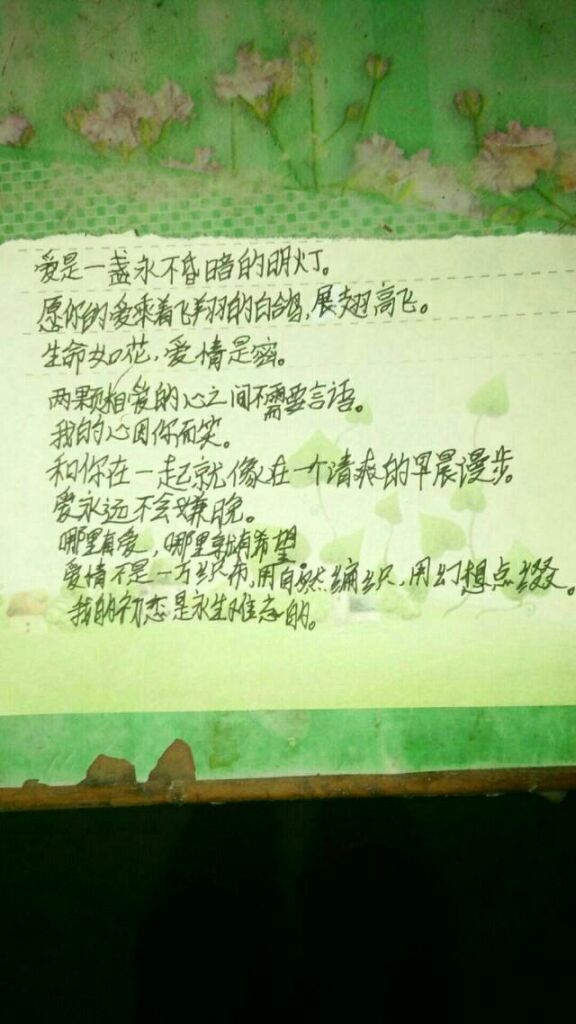 爱是一盏永不昏暗的明灯。
愿你的爱乘着飞翔的白鸽,展翅高飞。
生命如花,爱情是蜜。
两颗相爱的心之间不需要言语。
我的心因你而笑。
和你在一起就像在一个清爽的早晨漫步。
爱永远不会嫌晚。
哪里有爱,哪里就有希望。
爱情不是一方织布,用自然编织,用幻想点缀。
我的初恋是永生难忘的。